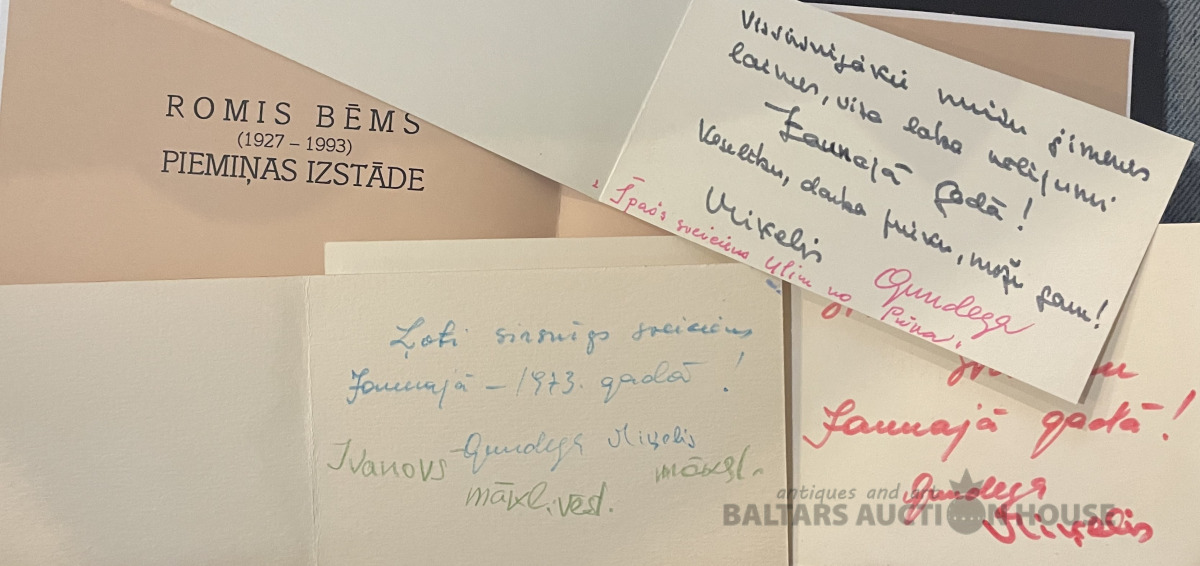 ROMIS BĒMS
(1927 – 1993)
PIEMIŅAS IZSTĀDE
Vissirsnīgākie mūsu ģimenes
laimes, visa laba novējumi
Jaunajā gadā!
Veselību, darba prieku, možu garu!
Miķelis
Gundega
Īpašs sveiciens Ulim no
Ļoti sirsnīgs sveiciens
Jaunajā – 1973. gadā!
Gundega Miķelis
Ivanovs
māksl.
māxl.vēst.
Jaunajā gadā!
Gundega
Miķelis
antiques and art
BALTARS AUCTION HOUSE